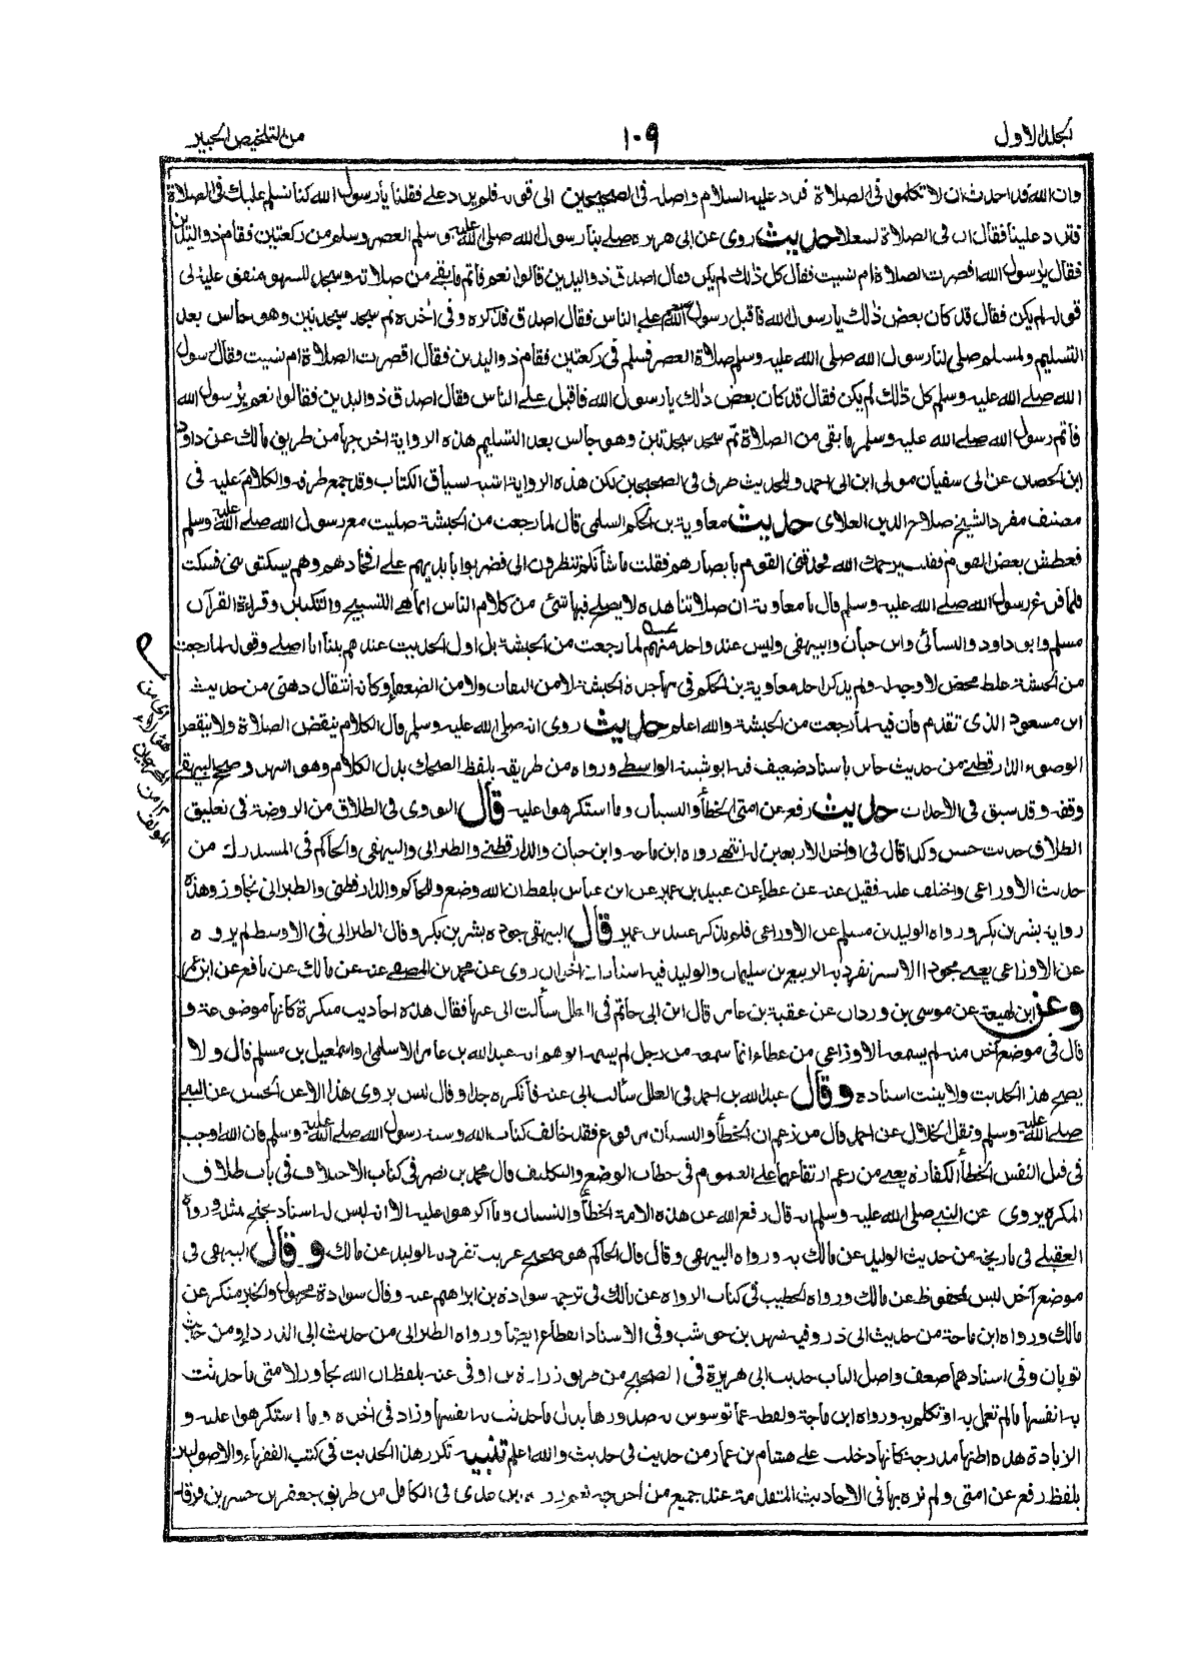 المجلد الاول
١٠٩
من التلخيص الحبير
وان الله قد احدث ان لا تكلموا فى الصلاة فرد عليه السلام واصله فى الصحيحين الى قوله فلم يرد على فقلنا يارسول الله كنا نسلم عليك فى الصلاة
فترد علينا فقال ان فى الصلاة لشغلا حديث روى عن ابى هريرة صلى بنا رسول الله صلى الله عليه وسلم العصر وسلم من ركعتين فقام ذو اليدين
فقال يارسول الله اقصرت الصلاة ام نسيت فقال كل ذلك لم يكن فقال اصدق ذو اليدين قالوا نعم فاتم ما بقى من صلاته وسجد للسهو متفق عليه الى
قوله لم يكن فقال قد كان بعض ذلك يارسول الله فاقبل رسول الله على الناس فقال اصدق فذكره وفى اخره ثم سجد سجدتين وهو جالس بعد
التسليم ولمسلم صلى لنا رسول الله صلى الله عليه وسلم صلاة العصر فسلم فى ركعتين فقام ذو اليدين فقال اقصرت الصلاة ام نسيت فقال رسول
الله صلى الله عليه وسلم كل ذلك لم يكن فقال قد كان بعض ذلك يارسول الله فاقبل على الناس فقال اصدق ذو اليدين فقالوا نعم يارسول الله
فاتم رسول الله صلى الله عليه وسلم ما بقى من الصلاة ثم سجد سجدتين وهو جالس بعد التسليم هذه الرواية اخرجها من طريق مالك عن داود
ابن الحصين عن ابى سفيان مولى ابن ابى احمد وللحديث طرق فى الصحيحين لكن هذه الرواية اشبه بسياق الكتاب وقد جمع طرقه والكلام عليه فى
مصنف مفرد الشيخ صلاح الدين العلائى حديث معاوية بن الحكم السلمى قال لما رجعت من الحبشة صليت مع رسول الله صلى الله عليه وسلم
فعطس بعض القوم فقلت يرحمك الله فحدقنى القوم بابصارهم فقلت ما شأنكم تنظرون الى فضربوا بايديهم على افخاذهم وهم يسكتونى فسكت
فلما فرغ رسول الله صلى الله عليه وسلم قال يا معاوية ان صلاتنا هذه لا يصلح فيها شئ من كلام الناس انما هى التسبيح والتكبير وقراءة القرآن
مسلم وابو داود والنسائى وابن حبان والبيهقى وليس عند واحد منهم لما رجعت من الحبشة بل اول الحديث عندهم بينا انا اصلى وقوله لما رجعت
من الحبشة غلط محض لا وجه له ولم يذكر احد معاوية بن الحكم فى مهاجرة الحبشة لا من الثقات ولا من الضعفاء وكانه انتقال ذهنى من حديث
ابن مسعود الذى تقدم فان فيه لما رجعت من الحبشة والله اعلم حديث روى انه صلى الله عليه وسلم قال الكلام ينقض الصلاة ولا ينقض
الوضوء الدارقطنى من حديث جابر باسناد ضعيف فيه ابو شيبة الواسطى ورواه من طريقه بلفظ الضحك بدل الكلام وهو اشهر وصحح البيهقى
وقفه وقد سبق فى الاحداث حديث رفع عن امتى الخطأ والنسيان وما استكرهوا عليه قال النووى فى الطلاق من الروضة فى تعليق
الطلاق حديث حسن وكذا قال فى اواخر الاربعين له انتهى رواه ابن ماجه وابن حبان والدارقطنى والطبرانى والبيهقى والحاكم فى المستدرك من
حديث الاوزاعى واختلف عليه فقيل عنه عن عطاء عن عبيد بن عمير عن ابن عباس بلفظ ان الله وضع وللحاكم والدارقطنى والطبرانى تجاوز وهذه
رواية بشر بن بكر ورواه الوليد بن مسلم عن الاوزاعى فلم يذكر عبيد بن عمير قال البيهقى جوده بشر بن بكر وقال الطبرانى فى الاوسط لم يروه
عن الاوزاعى يعنى مجودا الا بشر تفرد به الربيع بن سليمان والوليد فيه اسنادان اخران روى عن محمد بن المصفى عنه عن مالك عن نافع عن ابن عمر
وعن ابن لهيعة عن موسى بن وردان عن عقبة بن عامر قال ابن ابى حاتم فى العلل سألت ابى عنها فقال هذه احاديث منكرة كانها موضوعة و
قال فى موضع آخر منه لم يسمعه الاوزاعى من عطاء انما سمعه من رجل لم يسمه اتوهم انه عبد الله بن عامر الاسلمى او اسمعيل بن مسلم قال ولا
يصح هذا الحديث ولا يثبت اسناده وقال عبد الله بن احمد فى العلل سألت ابى عنه فانكره جدا وقال ليس يروى هذا الا عن الحسن عن النبى
صلى الله عليه وسلم ونقل الخلال عن احمد قال من زعم ان الخطأ والنسيان مرفوع فقد خالف كتاب الله وسنة رسول الله صلى الله عليه وسلم فان الله اوجب
فى قتل النفس الخطأ الكفارة يعنى من زعم ارتفاعهما على العموم فى خطاب الوضع والتكليف قال محمد بن نصر فى كتاب الاختلاف فى باب طلاق
المكره يروى عن النبى صلى الله عليه وسلم انه قال رفع الله عن هذه الامة الخطأ والنسيان وما اكرهوا عليه الا انه ليس له اسناد يحتج بمثله ورواه
العقيلى فى تاريخه من حديث الوليد عن مالك به ورواه البيهقى وقال قال الحاكم هو صحيح غريب تفرد به الوليد عن مالك وقال البيهقى فى
موضع آخر ليس بمحفوظ عن مالك ورواه الخطيب فى كتاب الرواة عن مالك فى ترجمة سوادة بن ابراهيم عنه وقال سوادة مجهول والخبر منكر عن
مالك ورواه ابن ماجة من حديث ابى ذر وفيه شهر بن حوشب وفى الاسناد انقطاع ايضا ورواه الطبرانى من حديث ابى الدرداء ومن حديث
ثوبان وفى اسنادهما ضعف واصل الباب حديث ابى هريرة فى الصحيح من طريق زرارة بن اوفى عنه بلفظ ان الله تجاوز لامتى ما حدثت
به انفسها ما لم تعمل به او تكلم به ورواه ابن ماجة ولفظه عما توسوس به صدورها بدل ما حدثت به انفسها وزاد فى اخره وما استكرهوا عليه و
الزيادة هذه اظنها مدرجة كانها دخلت على هشام بن عمار من حديث فى حديث والله اعلم تنبيه تكرر هذا الحديث فى كتب الفقهاء والاصوليين
بلفظ رفع عن امتى ولم نره بها فى الاحاديث المتقدمة عند جميع من اخرجه نعم رواه ابن عدى فى الكامل من طريق جعفر بن جسر بن فرقد